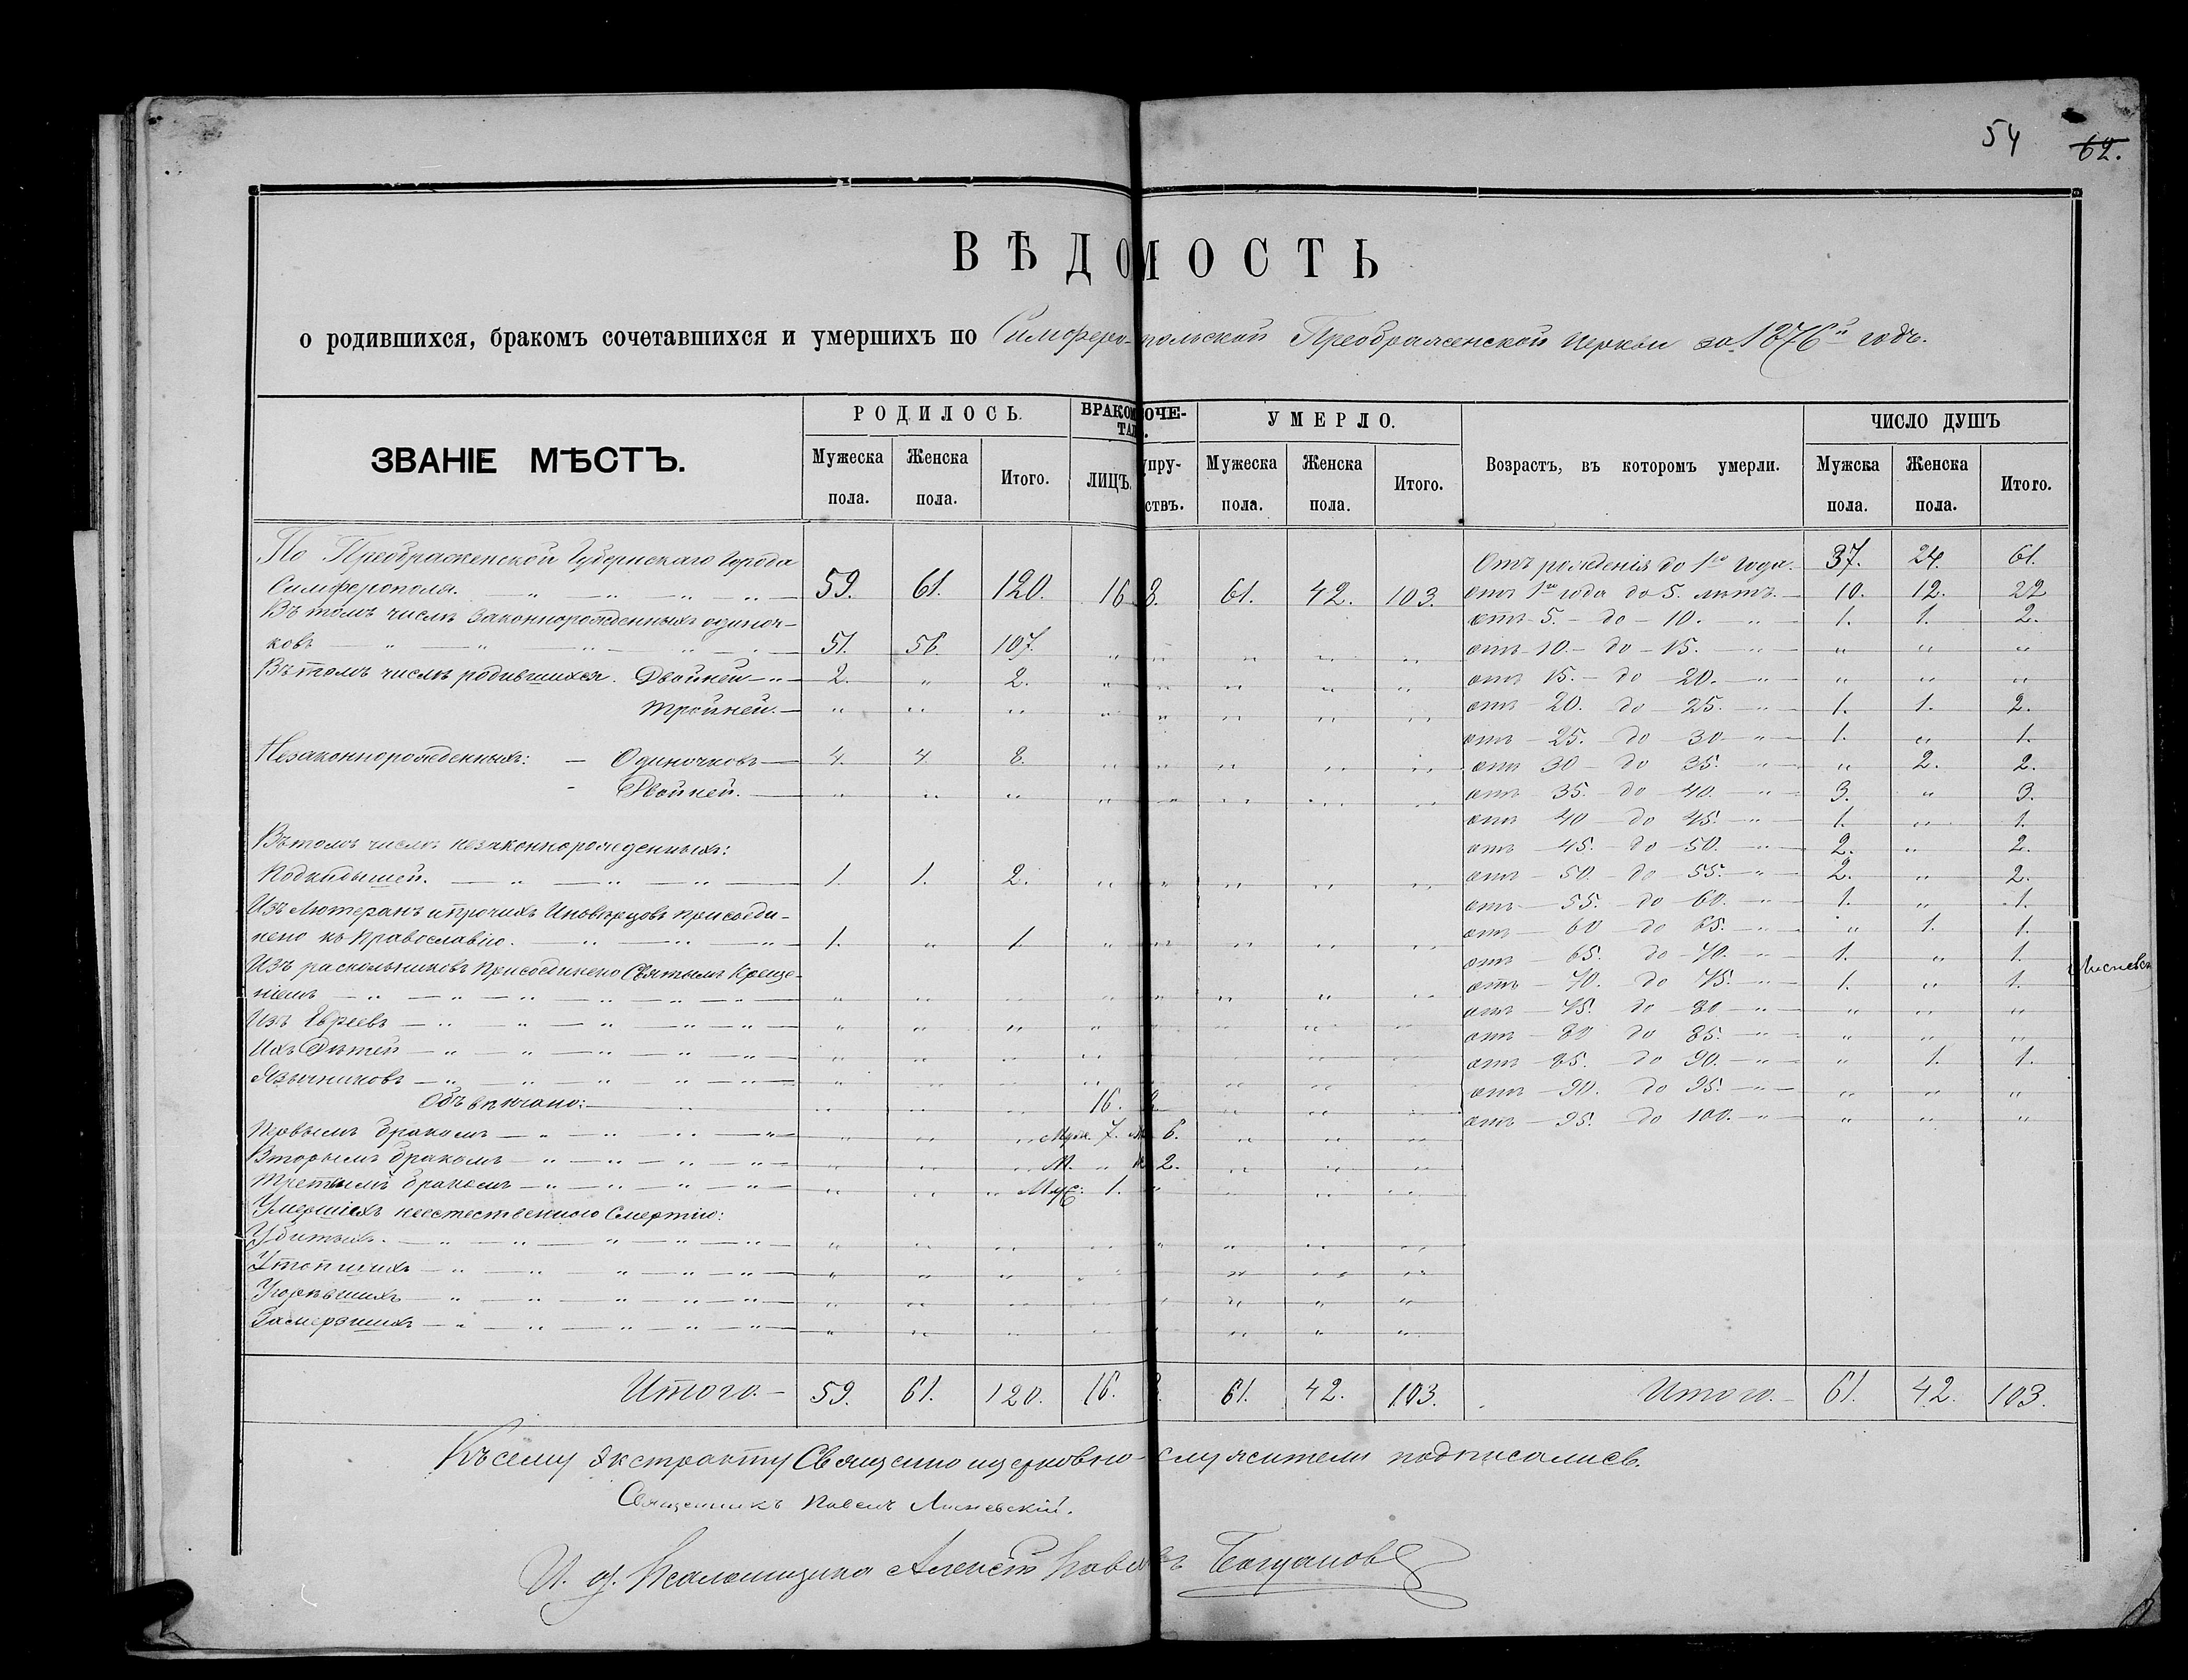 54 62.
ВѢДОМОСТЬ
о родившихся, бракомъ сочетавшихся и умершихъ по Симферопольской Преображенской церкви за 1876й годъ.
ЗВАНІЕ МѢСТЪ. РОДИЛОСЬ. БРАКОМ СОЧЕ- УМЕРЛО. Возрастъ, въ которомъ умерли. ЧИСЛО ДУШЪ
Мужеска пола. Женска пола. Итого. ЛИЦЪ. упру-ствъ. Мужеска пола. Женска пола. Итого. Мужска пола. Женска пола. Итого.
По Преображенской Губернскаго города
Симферополя. 59. 61. 120. 16 8. 61. 42. 103.
Въ томъ числѣ законнорожденныхъ одиноч-
ковъ 51. 56. 107. „ „ „ „ „
Въ томъ числѣ родившихся. Двойней 2. „ 2. „ „ „ „ „
Тройней. „ „ „ „ „ „ „ „
Незаконнорожденныхъ: Одиночковъ 4. 4 8. „ „ „ „ „
Двойней. „ „ „ „ „ „ „ „
Въ томъ числѣ незаконнорожденныхъ:
Подкидышей. 1. 1. 2. „ „ „ „ „
Изъ Лютеранъ и прочихъ Иновѣрцовъ присоеди-
нено къ Православію. 1. „ 1. „ „ „ „ „
Изъ раскольниковъ Присоединено Святымъ Креще-
ніемъ „ „ „ „ „ „ „ „
Изъ Евреевъ „ „ „ „ „ „ „ „
Ихъ Дѣтей „ „ „ „ „ „ „ „
Язычниковъ „ „ „ „ „ „ „ „
Обвѣнчано: „ „ „ 16. 8. „ „ „
Первымъ бракомъ „ „ „ Муж. 7. 6. „ „ „
Вторымъ бракомъ „ „ „ М. „ 2. „ „ „
Третьимъ бракомъ „ „ „ 1. „ „ „ „
Умершихъ неестественною Смертію:
Убитыхъ. „ „ „ „ „ „ „ „
Утопшихъ „ „ „ „ „ „ „ „
Угорѣвшихъ „ „ „ „ „ „ „ „
Замерзшихъ „ „ „ „ „ „ „ „
Итого. 59. 61. 120. 16. 61. 42. 103.
Отъ рожденія до 1го года. 37. 24. 61.
отъ 1го года до 5. лѣтъ. 10. 12. 22
отъ 5. до 10. 1. 1. 2.
отъ 10. до 15. „ „ „
отъ 15. до 20. „ „ „
отъ 20. до 25. 1. 1. 2.
отъ 25. до 30 1. „ 1.
отъ 30 до 35. „ 2. 2.
отъ 35. до 40. 3. „ 3.
отъ 40 до 45. 1. „ 1.
отъ 45. до 50. 2. „ 2.
отъ 50. до 55. 2. „ 2.
отъ 55. до 60. 1. „ 1.
отъ 60 до 65. „ 1. 1.
отъ 65. до 70. 1. „ 1.
отъ 70. до 75. 1. „ 1.
отъ 75. до 80 „ „ „
отъ 80 до 85. „ „ „
отъ 85. до 90. „ 1. 1.
отъ 90. до 95. „ „ „
отъ 95. до 100. „ „ „
Итого. 61. 42. 103.
Къ сему Экстракту Священно церковно-служители подписались.
Священникъ Павелъ Лисневскій.
И. д. Псаломщика Алексѣй Богдановъ